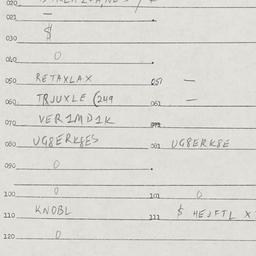 020
021 —
030 $
040 0
050 RETAXLAX 057 —
060 TRJUXLE (249 061 —
070 VER1MD1K
080 UG8ERK8ES 081 UG8ERK8E
090 0
100 0 101 0
110 KNOBL 111 $ HEJFTL X
120 0